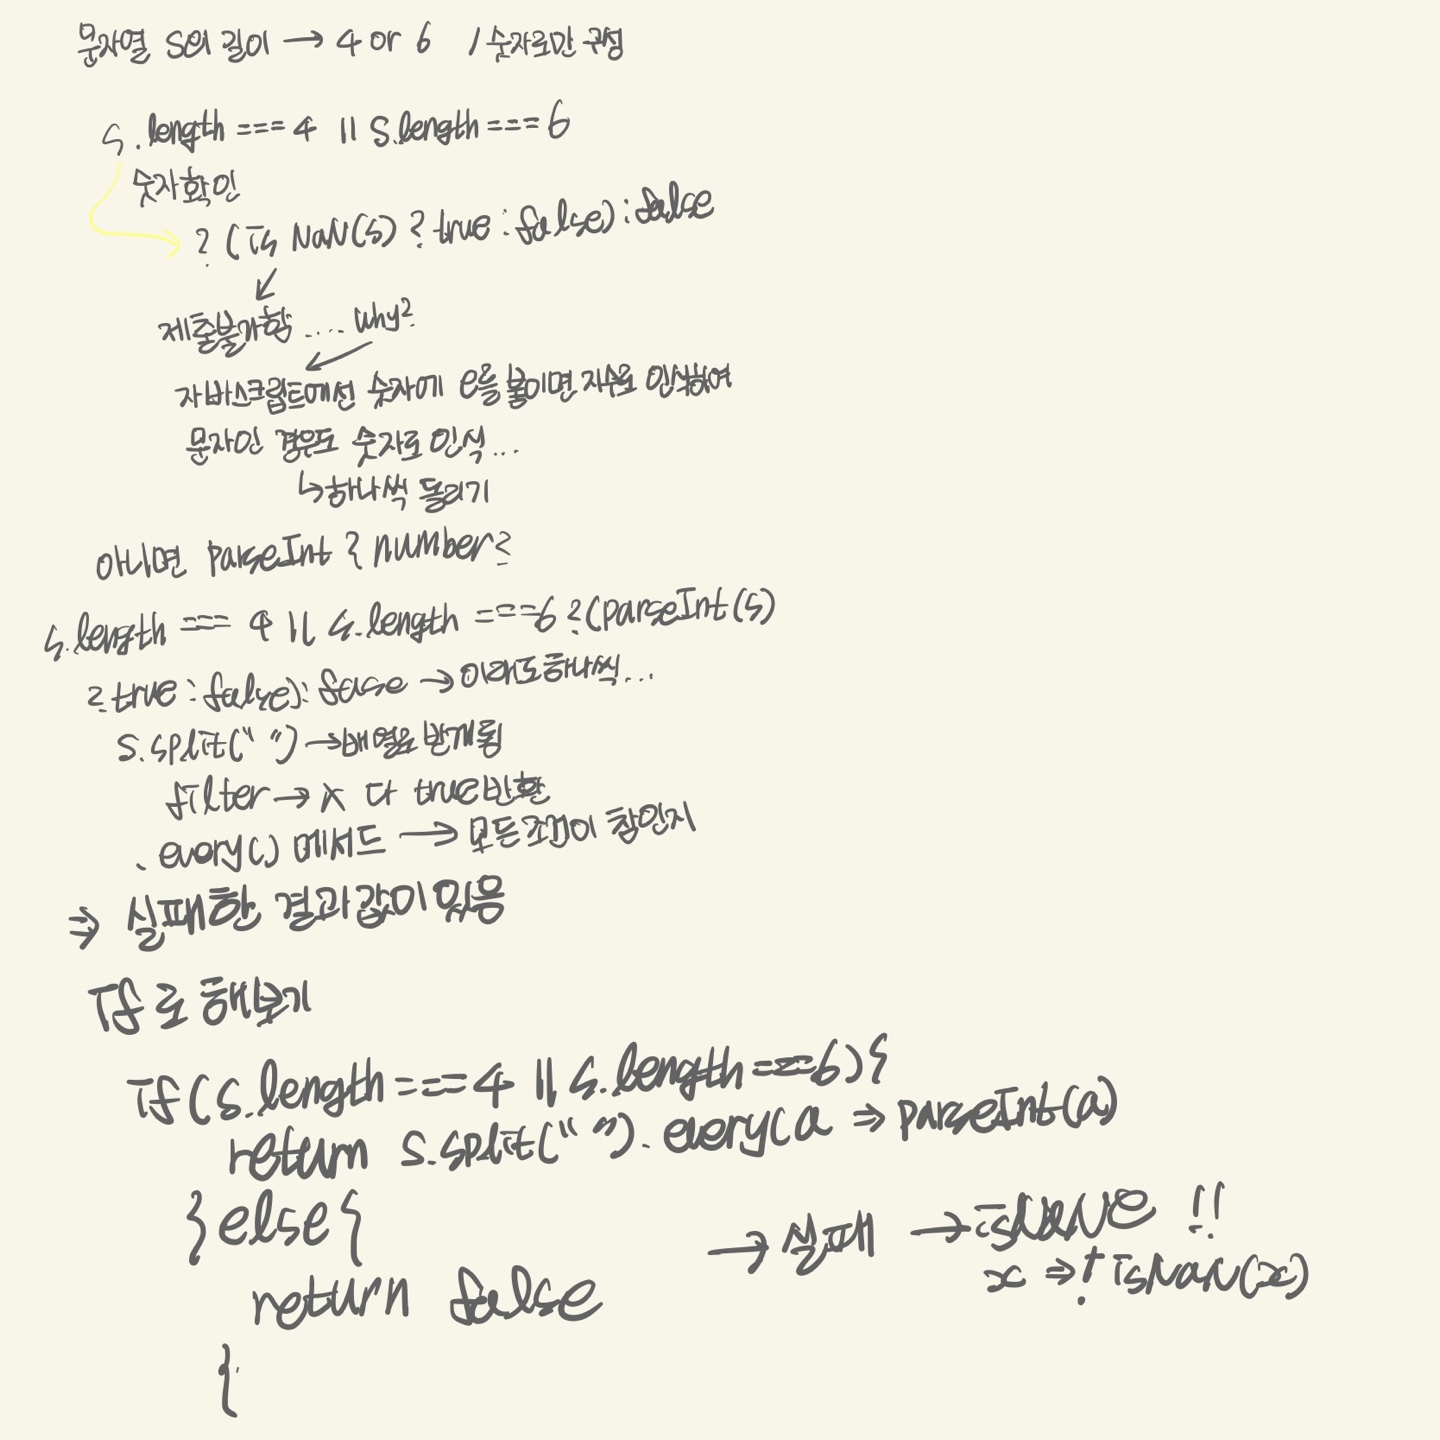 문자열 s의 길이 → 4 or 6 / 숫자로만 구성
s.length === 4 || s.length === 6
숫자확인
? (isNaN(s) ? true : false) : false
제출불가함 .... why?
자바스크립트에선 숫자에 e를 붙이면 지수로 인식하여
문자인 경우도 숫자로 인식...
↳ 하나씩 돌리기
아니면 parseInt ? number?
s.length === 4 || s.length === 6 ? (parseInt(s)
? true : false) : fase → 이래도 하나씩...
s.split(" ") → 배열로 받게됨
filter → x 다 true 반환
. every() 메서드 → 모든 조건이 참인지
⇒ 실패한 결과값이 있음
if로 해보기
if(s.length === 4 || s.length === 6){
return s.split(" "). every(a ⇒ parseInt(a)
} else {
→ 실패 → isNaN으로 !!
x ⇒ ! isNaN(x)
return false
{